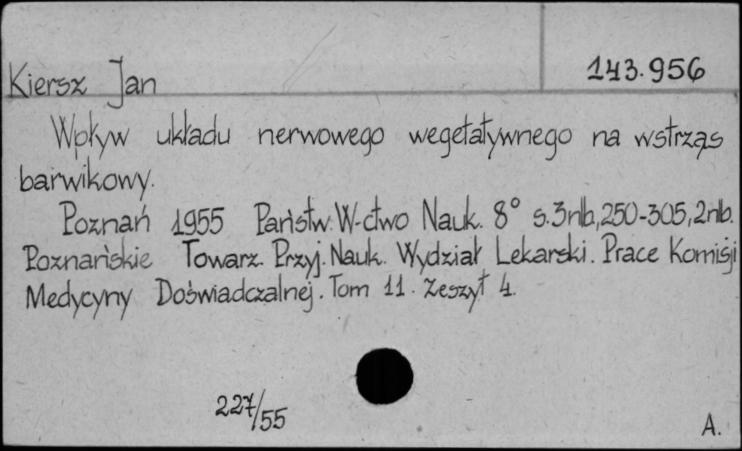 143.956
Kiersz Jan
Wpływ układu nerwowego wegetatywnego na wstrząs
barwikowy.
Poznań 1955 Państw. W-ctwo Nauk. 8° s. 3nlb, 250-305, 2nlb.
Poznańskie Towarz. Przyj. Nauk. Wydział Lekarski. Prace Komisji
Medycyny Doświadczalnej. Tom 11. Zeszyt 4.
227/55
A.